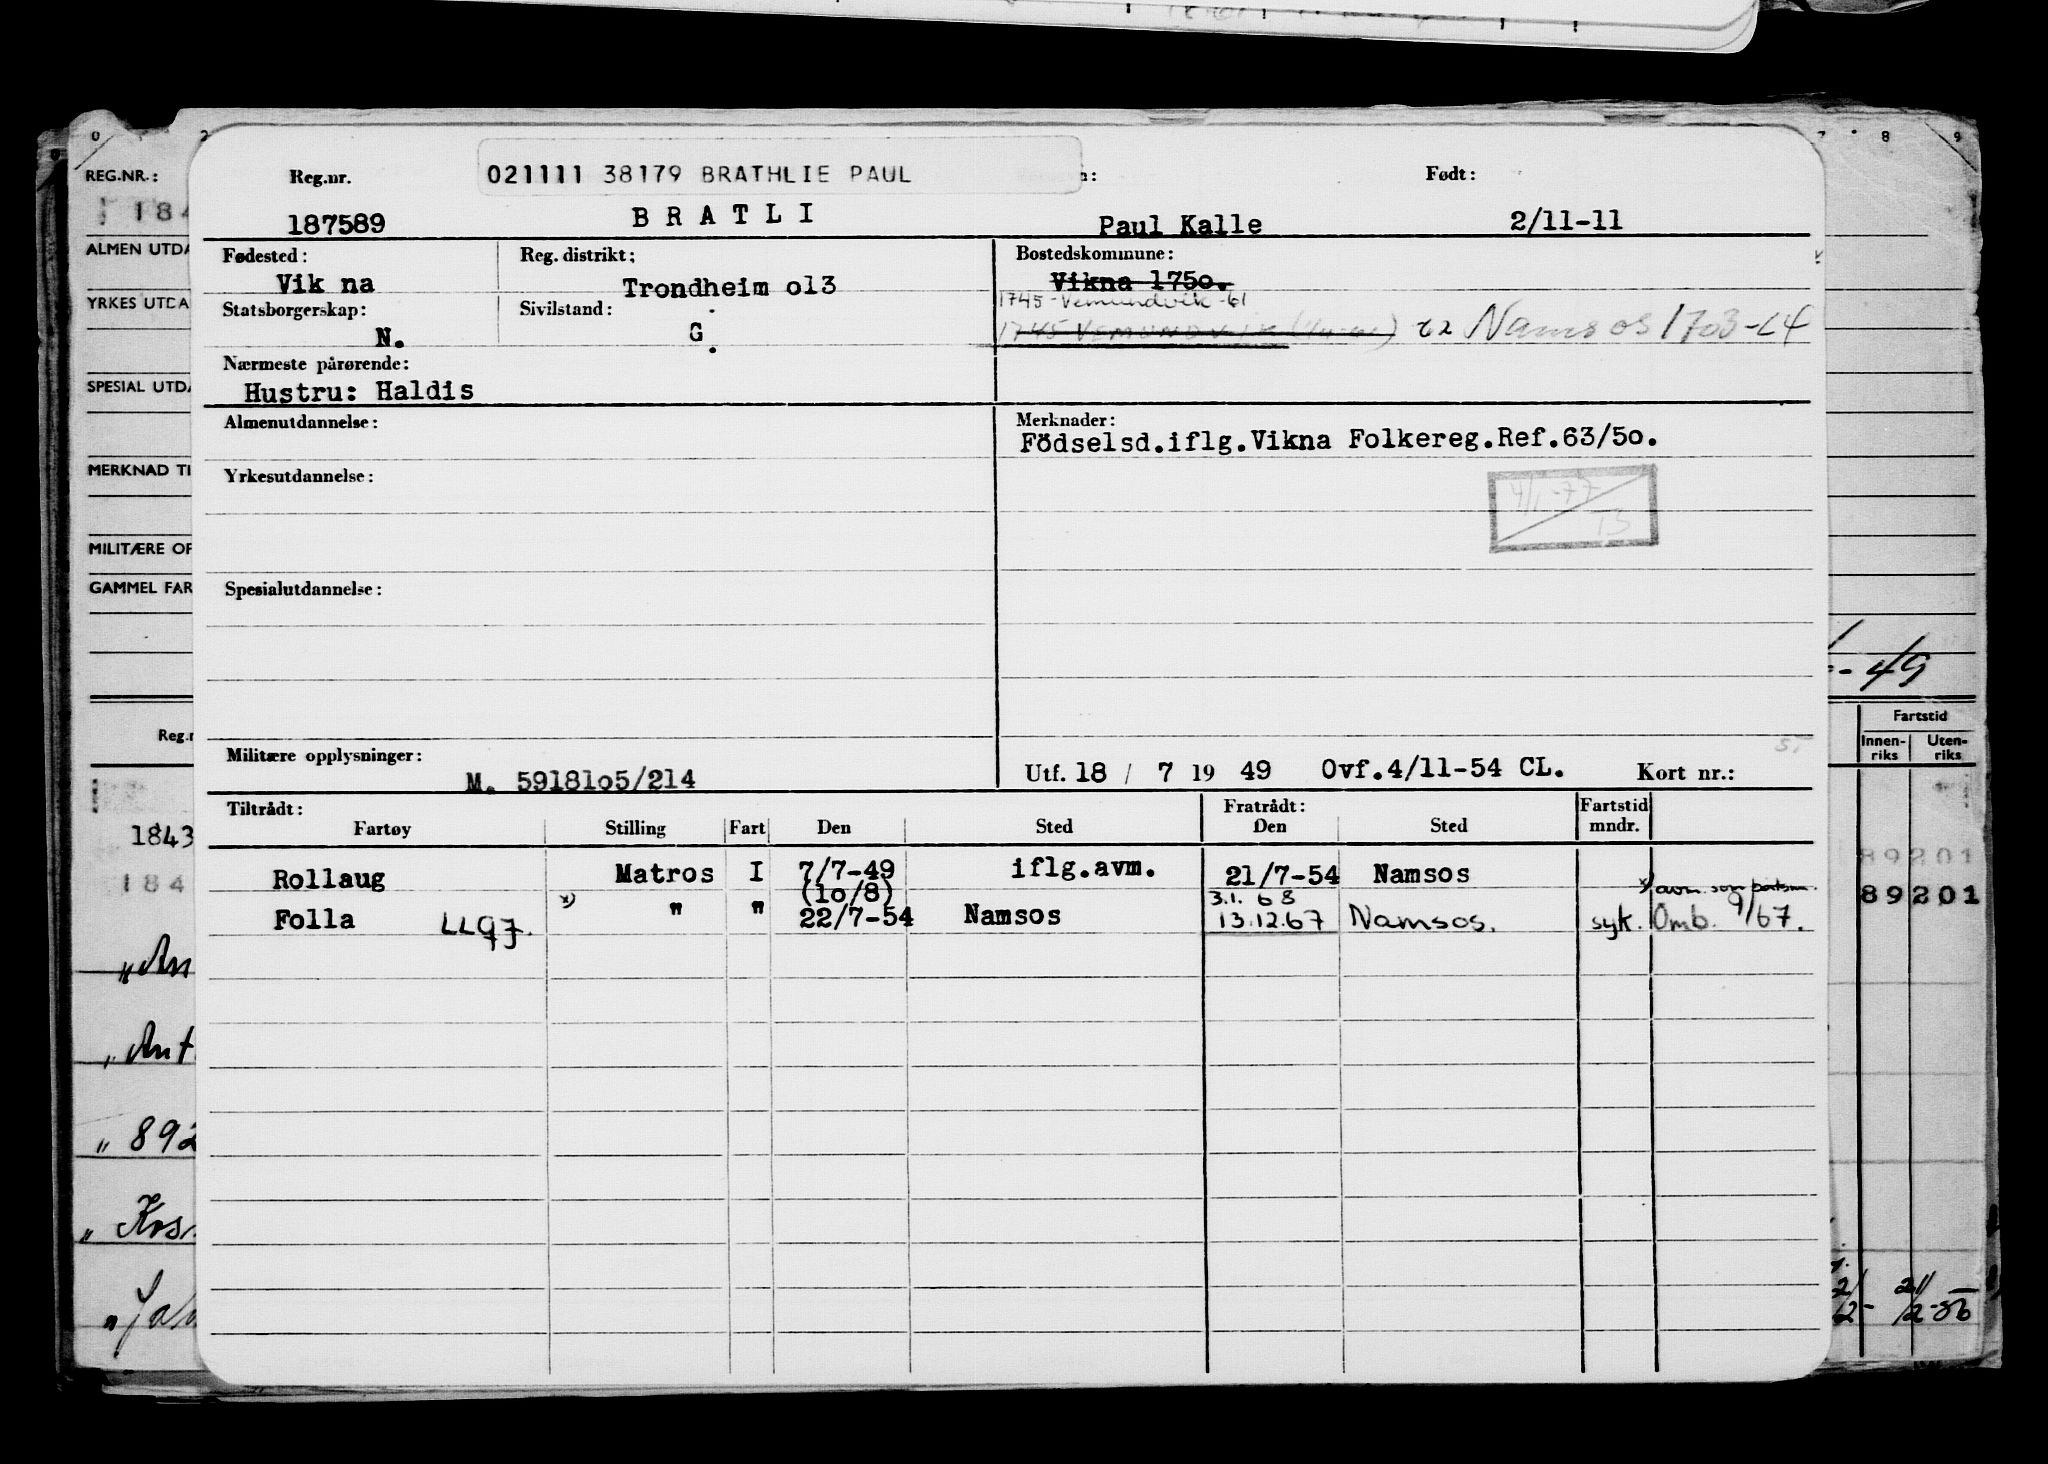 021111 38179 BRATHLIE PAUL
Reg.nr. Født:
187589 BRATLI Paul Kalle 2/11-11
Fødested: Reg. distrikt: Bostedskommune:
Vik na Trondheim o13 Vikna 175o.
1745-Vemundvik-61
Statsborgerskap: Sivilstand:
N. G. 1745 VEMUNDVIK 62 Namsos 1703-64
Nærmeste pårørende:
Hustru: Haldis
Almenutdannelse: Merknader:
Födselsd.iflg.Vikna Folkereg.Ref.63/5o.
Yrkesutdannelse:
4/1-77
13
Spesialutdannelse:
Militære opplysninger: Utf. 18 / 7 19 49 Ovf.4/11-54 CL. Kort nr.:
M. 59181o5/214
Tiltrådt: Fratrådt: Fartstid
Fartøy Stilling Fart Den Sted Den Sted mndr.
Rollaug Matros I 7/7-49 iflg.avm. 21/7-54 Namsos
(1o/8) 3.1. 68 x) avm. som
Folla LLQJ. x) " " 22/7-54 Namsos 13.12.67 Namsos. syk. Omb. 9/67.
0 2 7 8 9
REG.NR.:
184
ALMEN UTDA
YRKES UTDA
SPESIAL UTDA
MERKNAD TI
MILITÆRE OP
GAMMEL FAR
Reg.n
1843
184
"An
"Ant
" 892
" Kos
- 49
Fartstid
Innen-riks Uten-riks
89201
89201